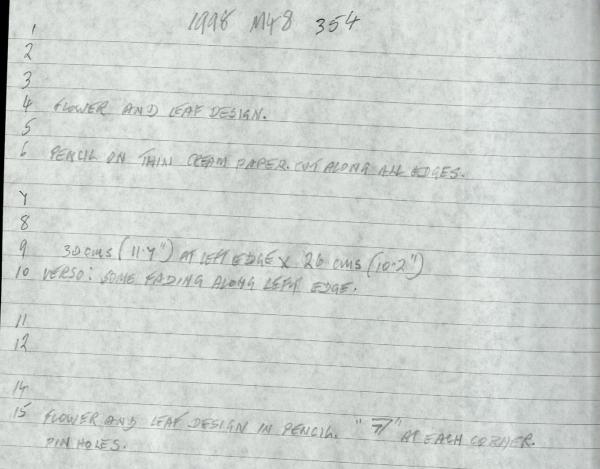 1998 M48 354
1
2
3
4 FLOWER AND LEAF DESIGN.
5
6 PENCIL ON THIN CREAM PAPER. CUT ALONG ALL EDGES.
7
8
9 30 cms (11.7") AT LEFT EDGE X 26 cms (10.2")
10 VERSO: SOME FADING ALONG LEFT EDGE.
11
12
14
15 FLOWER AND LEAF DESIGN IN PENCIL. " " AT EACH CORNER.
PIN HOLES.